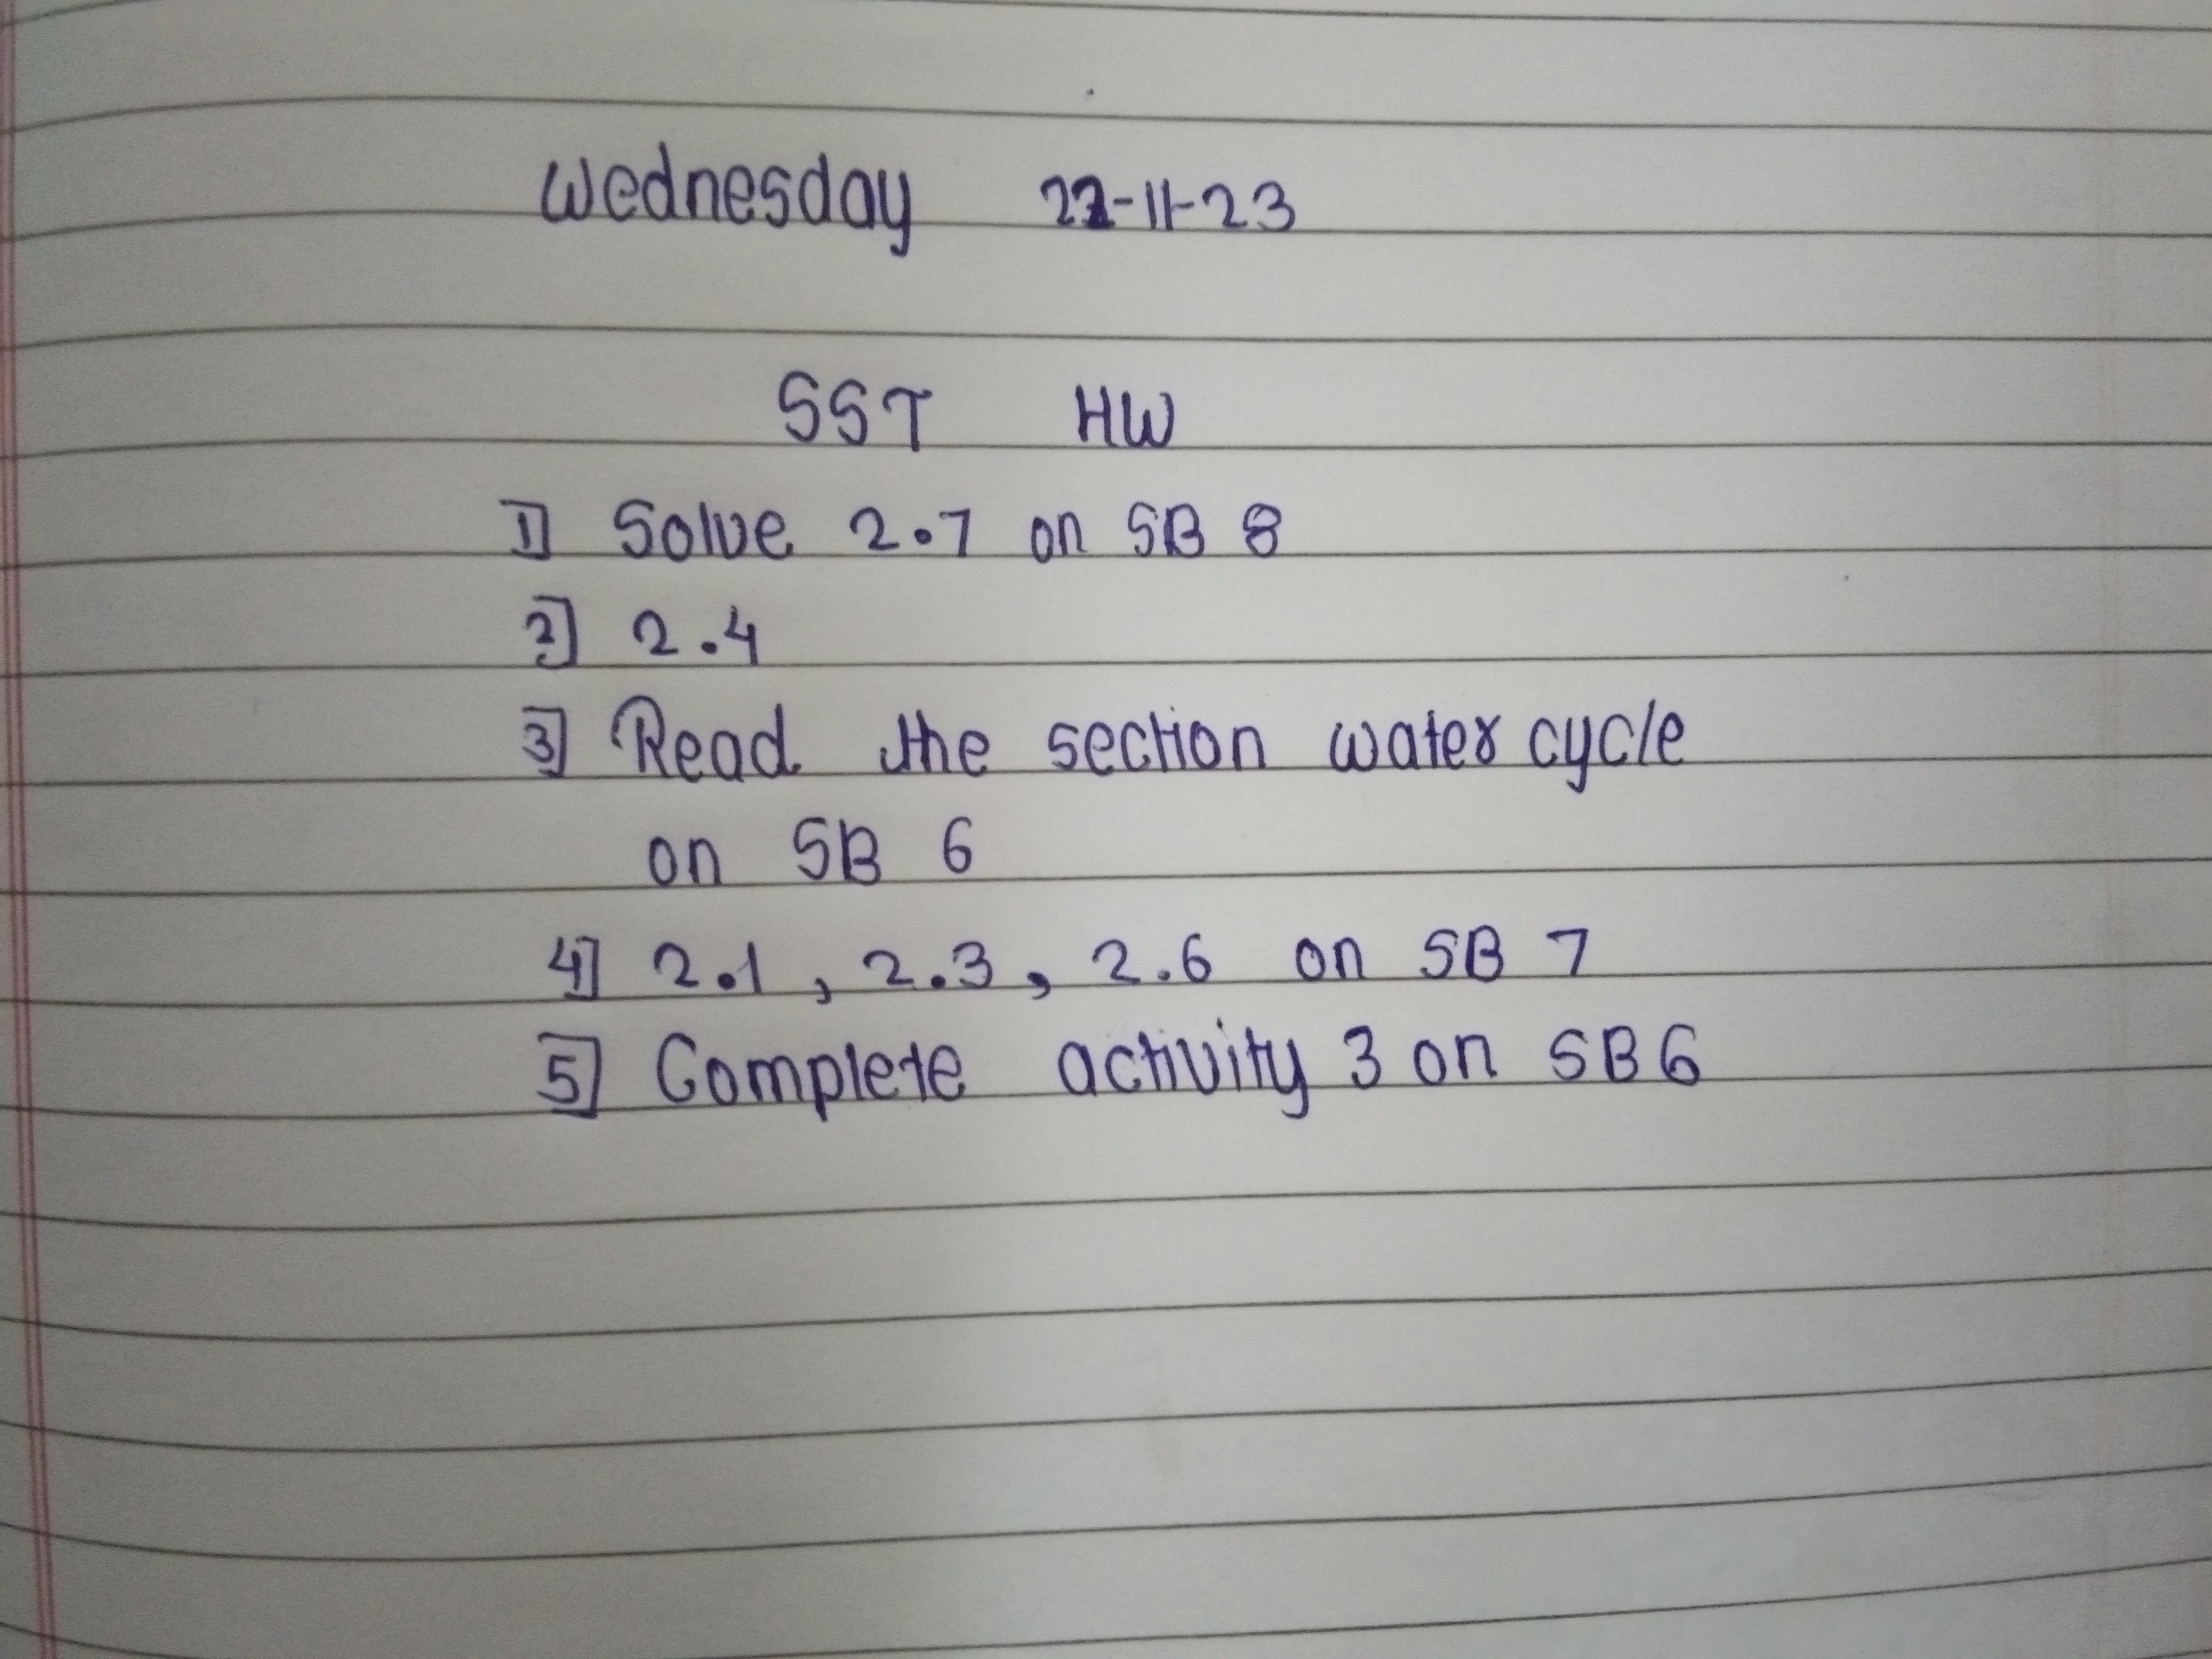 Wednesday 22-11-23
SST HW
1] Solve 2.7 on SB 8
2] 2.4
3] Read the section water cycle
on SB 6
4] 2.1, 2.3, 2.6 on SB 7
5] Complete activity 3 on SB6